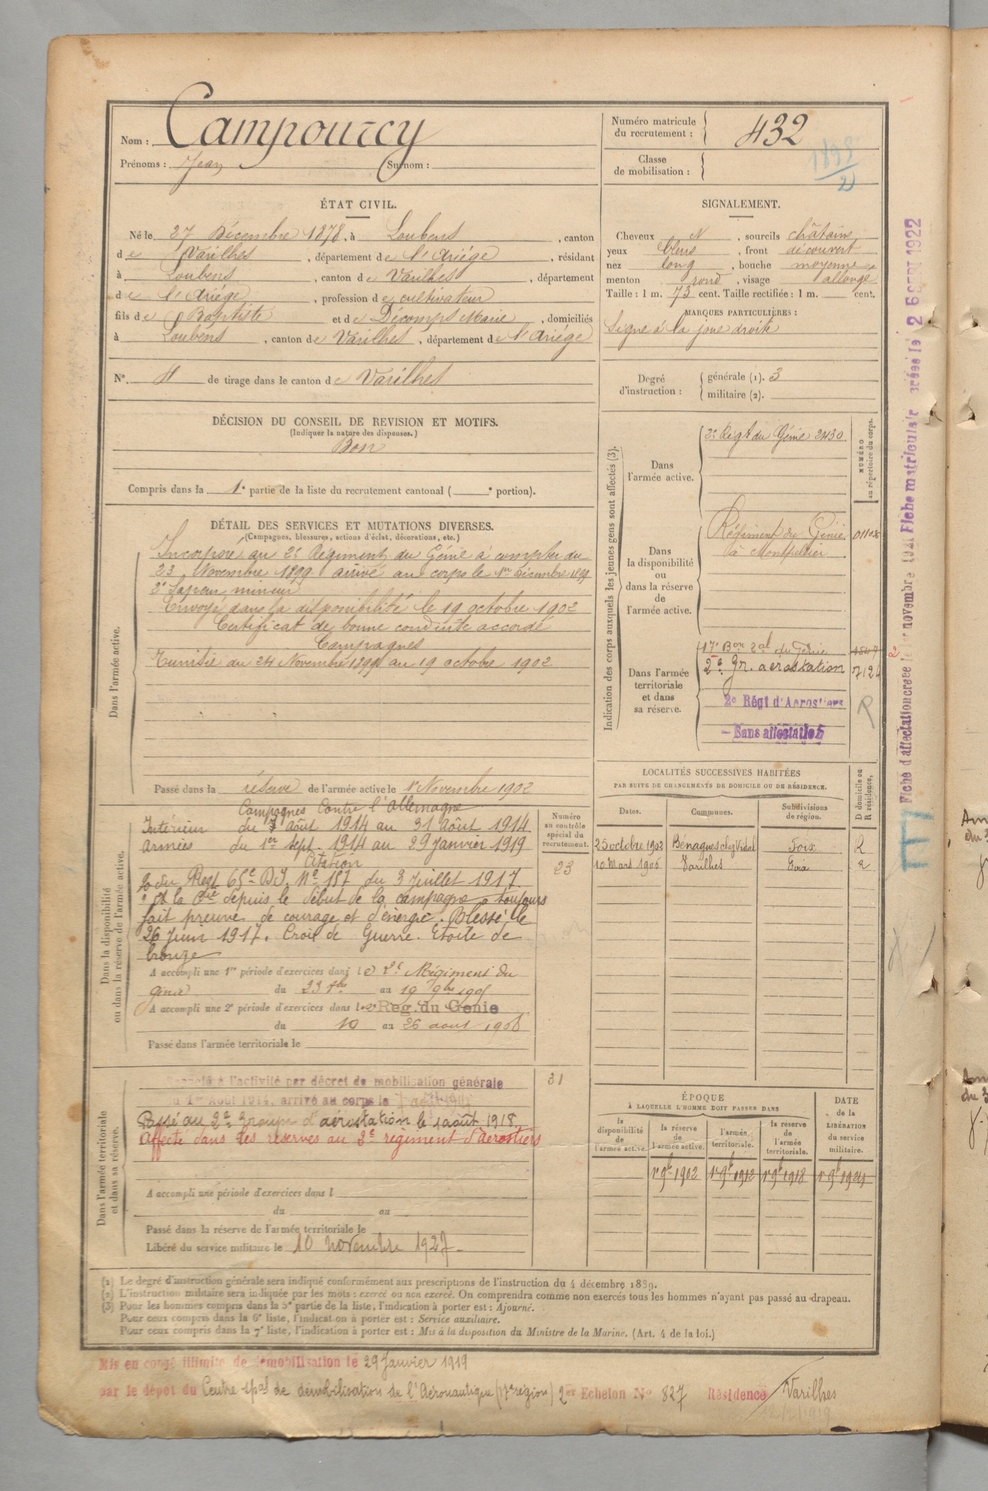 Nom : Campourcy
Prénoms : Jean Surnom :
Numéro matricule du recrutement : 432
Classe de mobilisation : 1898
ÉTAT CIVIL.
Né le 27 Décembre 1878, à Loubens, canton
de Varilhes, département de l'Ariège, résidant
à Loubens, canton de Varilhes, département
de l'Ariège, profession de cultivateur
fils de Baptiste et de Décamps Marie, domiciliés
à Loubens, canton de Varilhes, département de l'Ariège
N° de tirage dans le canton de Varilhes
SIGNALEMENT.
Cheveux N, sourcils châtains
yeux bleus, front découvert
nez long, bouche moyenne
menton rond, visage allongé
Taille : 1 m. 73 cent. Taille rectifiée : 1 m. cent.
MARQUES PARTICULIÈRES :
Signe à la joue droite
Degré d'instruction : générale (1). 3
militaire (2).
DÉCISION DU CONSEIL DE REVISION ET MOTIFS.
(Indiquer la nature des dispenses.)
Bon
Compris dans la 1e partie de la liste du recrutement cantonal ( e portion).
DÉTAIL DES SERVICES ET MUTATIONS DIVERSES.
(Campagnes, blessures, actions d'éclat, décorations, etc.)
Dans l'armée active.
Incorporé au 2e Régiment du Génie à compter du
23 Novembre 1899 arrivé au corps le 1er Décembre 1899
2e Sapeur mineur
Envoyé dans la disponibilité le 19 octobre 1902
Certificat de bonne conduite accordé
Campagnes
Tunisie du 24 Novembre 1899 au 19 octobre 1902
Passé dans la réserve de l'armée active le 1er Novembre 1902
Dans la disponibilité ou dans la réserve de l'armée active.
Campagnes Contre l'allemagne
Intérieur du 7 août 1914 au 31 août 1914
armées du 1er sept. 1914 au 29 janvier 1919
Citation
du Regt 65e D.I. No 187 du 3 Juillet 1917
à la Cie depuis le début de la campagne a toujours
fait preuve de courage et d'énergie. Blessé le
26 juin 1917. Croix de Guerre. Etoile de
bronze
A accompli une 1re période d'exercices dans le 2e Régiment du
génie du 23 au 19 9bre 1905
A accompli une 2e période d'exercices dans le 2e Reg. du Génie
du 10 au 26 aout 1908
Passé dans l'armée territoriale le
Numéro au contrôle spécial du recrutement.
23
31
Dans l'armée territoriale et dans sa réserve.
Rappelé à l'activité par décret de mobilisation générale
du 1er Août 1914, arrivé au corps le
Passé au 2e Groupe d'aérostation le 1 août 1918.
Affecté dans les réserves au 2e régiment d'Aerostiers
A accompli une période d'exercices dans l
du au
Passé dans la réserve de l'armée territoriale le
Libéré du service militaire le 10 novembre 1927
Indication des corps auxquels les jeunes gens sont affectés (3).
NUMÉRO au répertoire du corps.
Dans l'armée active.
2e Regt du Génie 2430
Dans la disponibilité ou dans la réserve de l'armée active.
Régiment du Génie
à Montpellier
Dans l'armée territoriale et dans sa réserve.
17e Bon Zal du Génie
2e Gr. aerostation 7124
2e Régt d'Aérostiers
R
Sans affectation
LOCALITÉS SUCCESSIVES HABITÉES
PAR SUITE DE CHANGEMENTS DE DOMICILE OU DE RÉSIDENCE.
Dates. Communes. Subdivisions de région. D domicile ou R résidence.
25 octobre 1902 Benagues chez Vidal Foix R
10 Mars 1906 Varilhes Foix R
ÉPOQUE
À LAQUELLE L'HOMME DOIT PASSER DANS
la disponibilité de l'armée active. la réserve de l'armée active. l'armée territoriale. la réserve de l'armée territoriale. DATE de la LIBÉRATION du service militaire.
1er 9bre 1902 1er 9bre 1912 1er 9bre 1918 1er 9bre 1924
(1) Le degré d'instruction générale sera indiqué conformément aux prescriptions de l'instruction du 4 décembre 1889.
(2) L'instruction militaire sera indiquée par les mots : exercé ou non exercé. On comprendra comme non exercés tous les hommes n'ayant pas passé au drapeau.
(3) Pour les hommes compris dans la 5e partie de la liste, l'indication à porter est : Ajourné.
Pour ceux compris dans la 6e liste, l'indication à porter est : Service auxiliaire.
Pour ceux compris dans la 7e liste, l'indication à porter est : Mis à la disposition du Ministre de la Marine. (Art. 4 de la loi.)
Mis en congé illimité de démobilisation le 29 Janvier 1919
par le dépôt du Centre spal de démobilisation de l'Aéronautique (17e région) 2er Echelon No 827 Résidence Varilhes